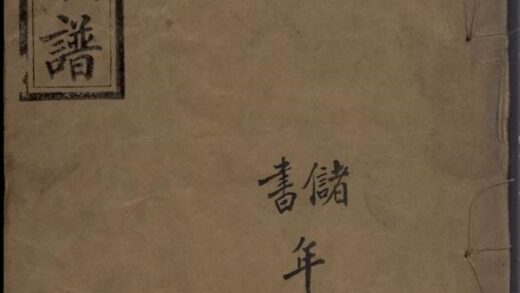 譜
儲書
年